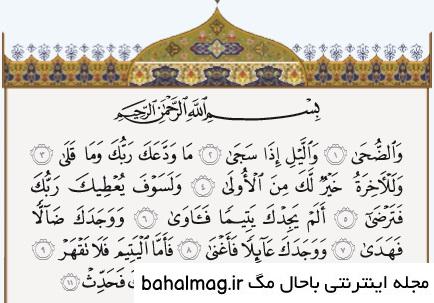 بِسْمِ اللَّهِ الرَّحْمَٰنِ الرَّحِيمِ
وَالضُّحَىٰ ﴿١﴾ وَاللَّيْلِ إِذَا سَجَىٰ ﴿٢﴾ مَا وَدَّعَكَ رَبُّكَ وَمَا قَلَىٰ ﴿٣﴾
وَلَلْآخِرَةُ خَيْرٌ لَّكَ مِنَ الْأُولَىٰ ﴿٤﴾ وَلَسَوْفَ يُعْطِيكَ رَبُّكَ
فَتَرْضَىٰ ﴿٥﴾ أَلَمْ يَجِدْكَ يَتِيمًا فَـَٔاوَىٰ ﴿٦﴾ وَوَجَدَكَ ضَالًّا
فَهَدَىٰ ﴿٧﴾ وَوَجَدَكَ عَائِلًا فَأَغْنَىٰ ﴿٨﴾ فَأَمَّا الْيَتِيمَ فَلَا تَقْهَرْ ﴿٩﴾
فَحَدِّثْ ﴿١١﴾
مجله اینترنتی باحال مگ bahalmag.ir